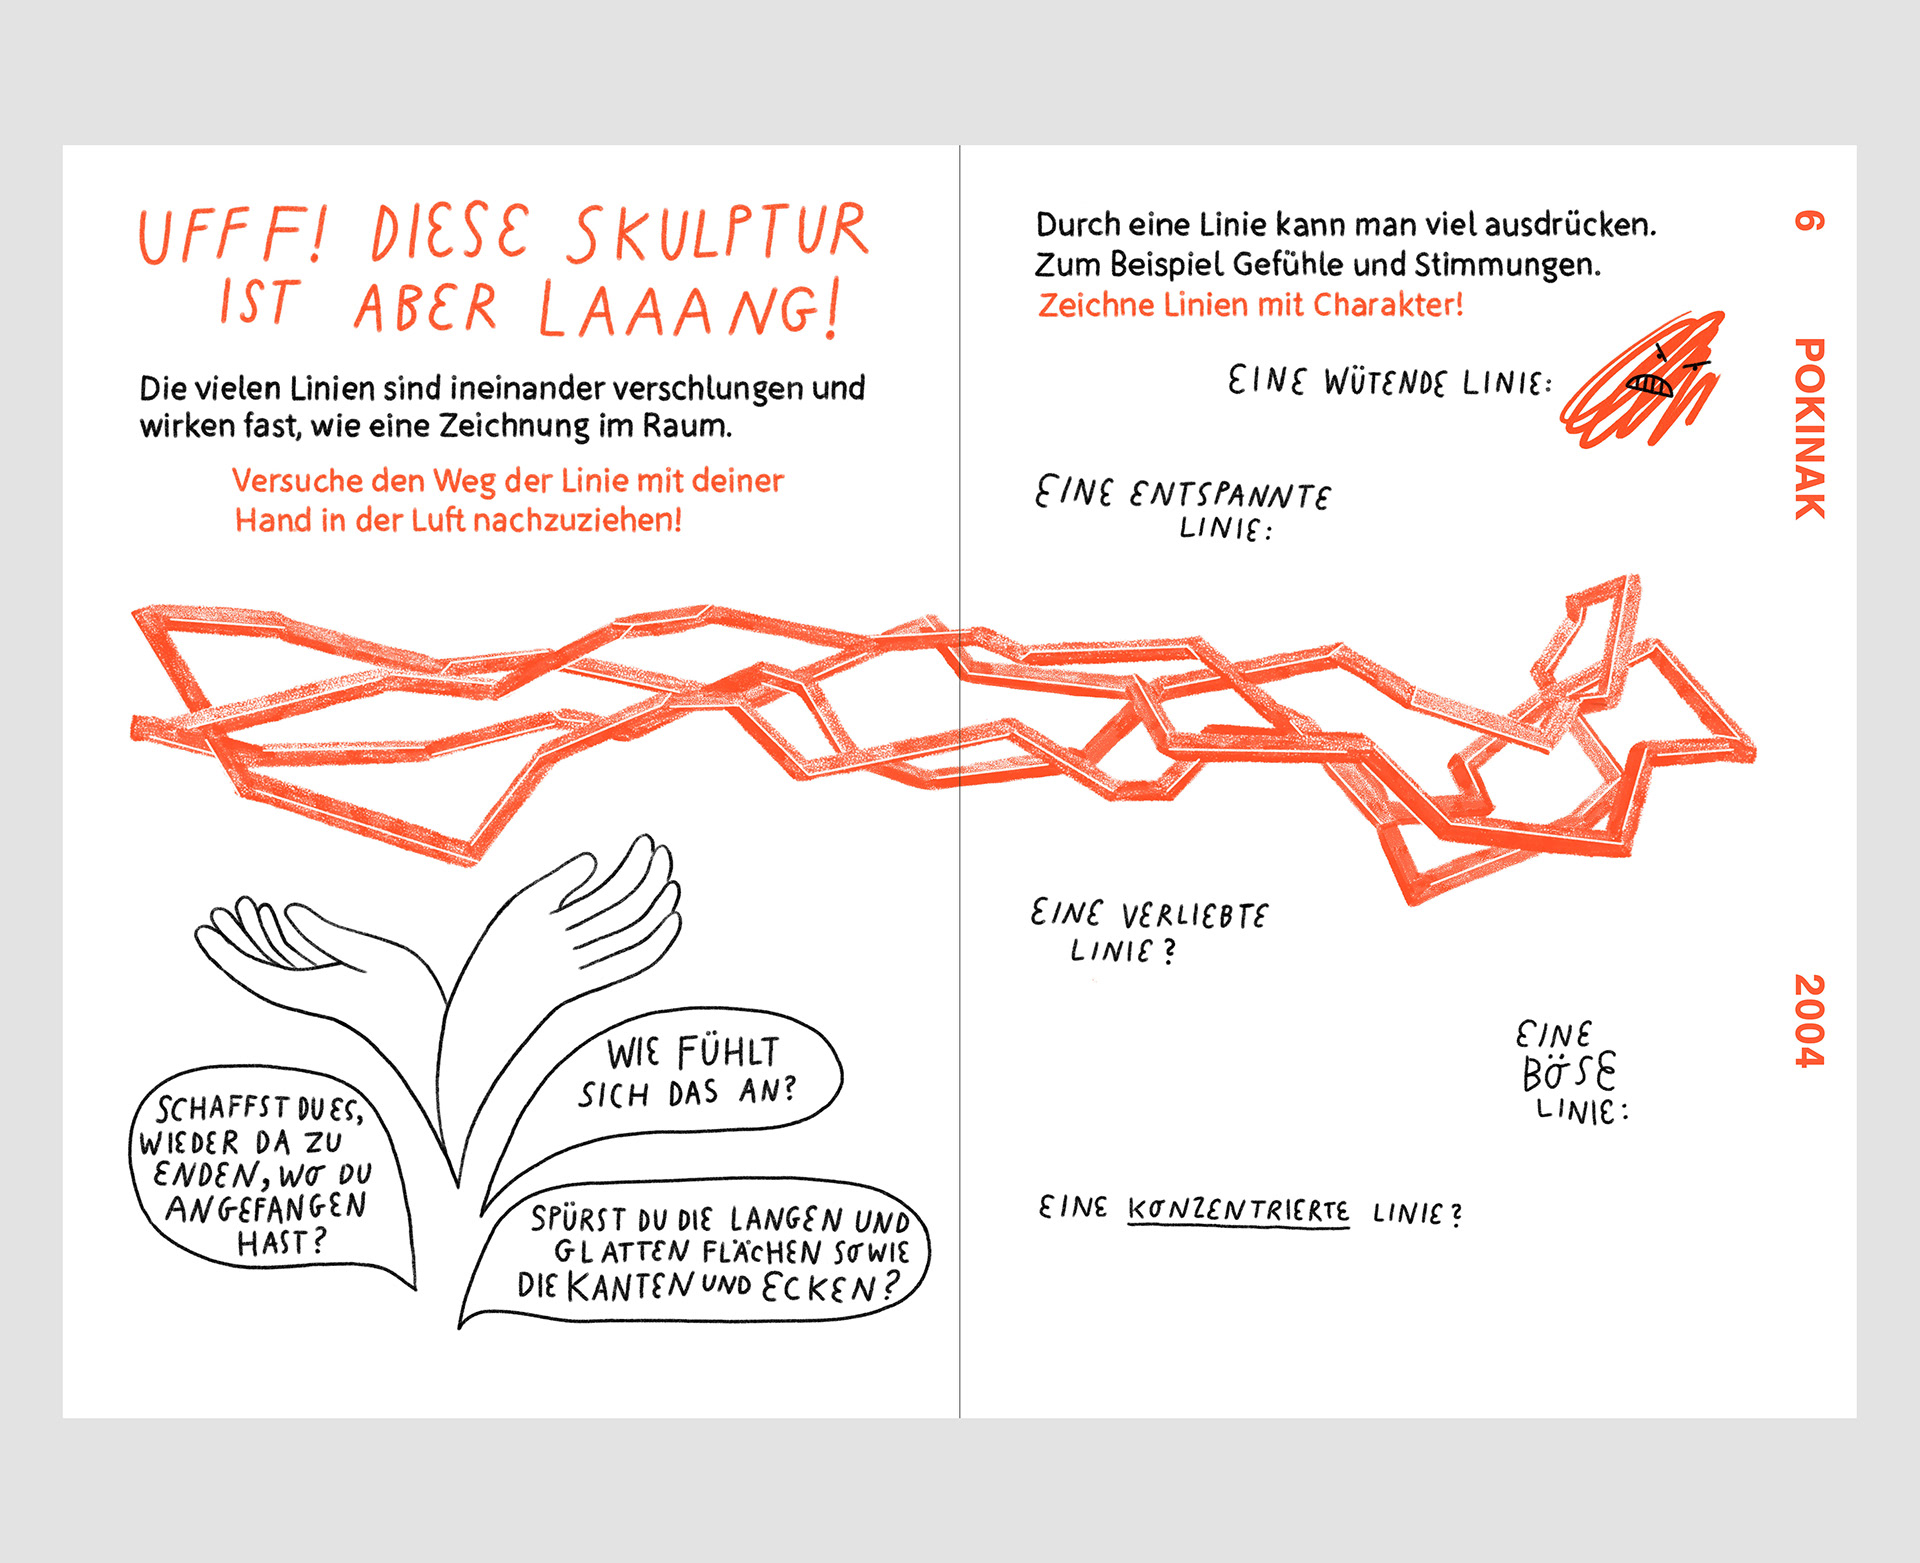 UFFF! DIESE SKULPTUR
IST ABER LAAANG!
Die vielen Linien sind ineinander verschlungen und
wirken fast, wie eine Zeichnung im Raum.
Versuche den Weg der Linie mit deiner
Hand in der Luft nachzuziehen!
WIE FÜHLT
SICH DAS AN?
SCHAFFST DU ES,
WIEDER DA ZU
ENDEN, WO DU
ANGEFANGEN
HAST?
SPÜRST DU DIE LANGEN UND
GLATTEN FLÄCHEN SOWIE
DIE KANTEN UND ECKEN?
Durch eine Linie kann man viel ausdrücken.
Zum Beispiel Gefühle und Stimmungen.
Zeichne Linien mit Charakter!
EINE WÜTENDE LINIE:
EINE ENTSPANNTE
LINIE:
EINE VERLIEBTE
LINIE?
EINE
BÖSE
LINIE:
EINE KONZENTRIERTE LINIE?
6 POKINAK 2004